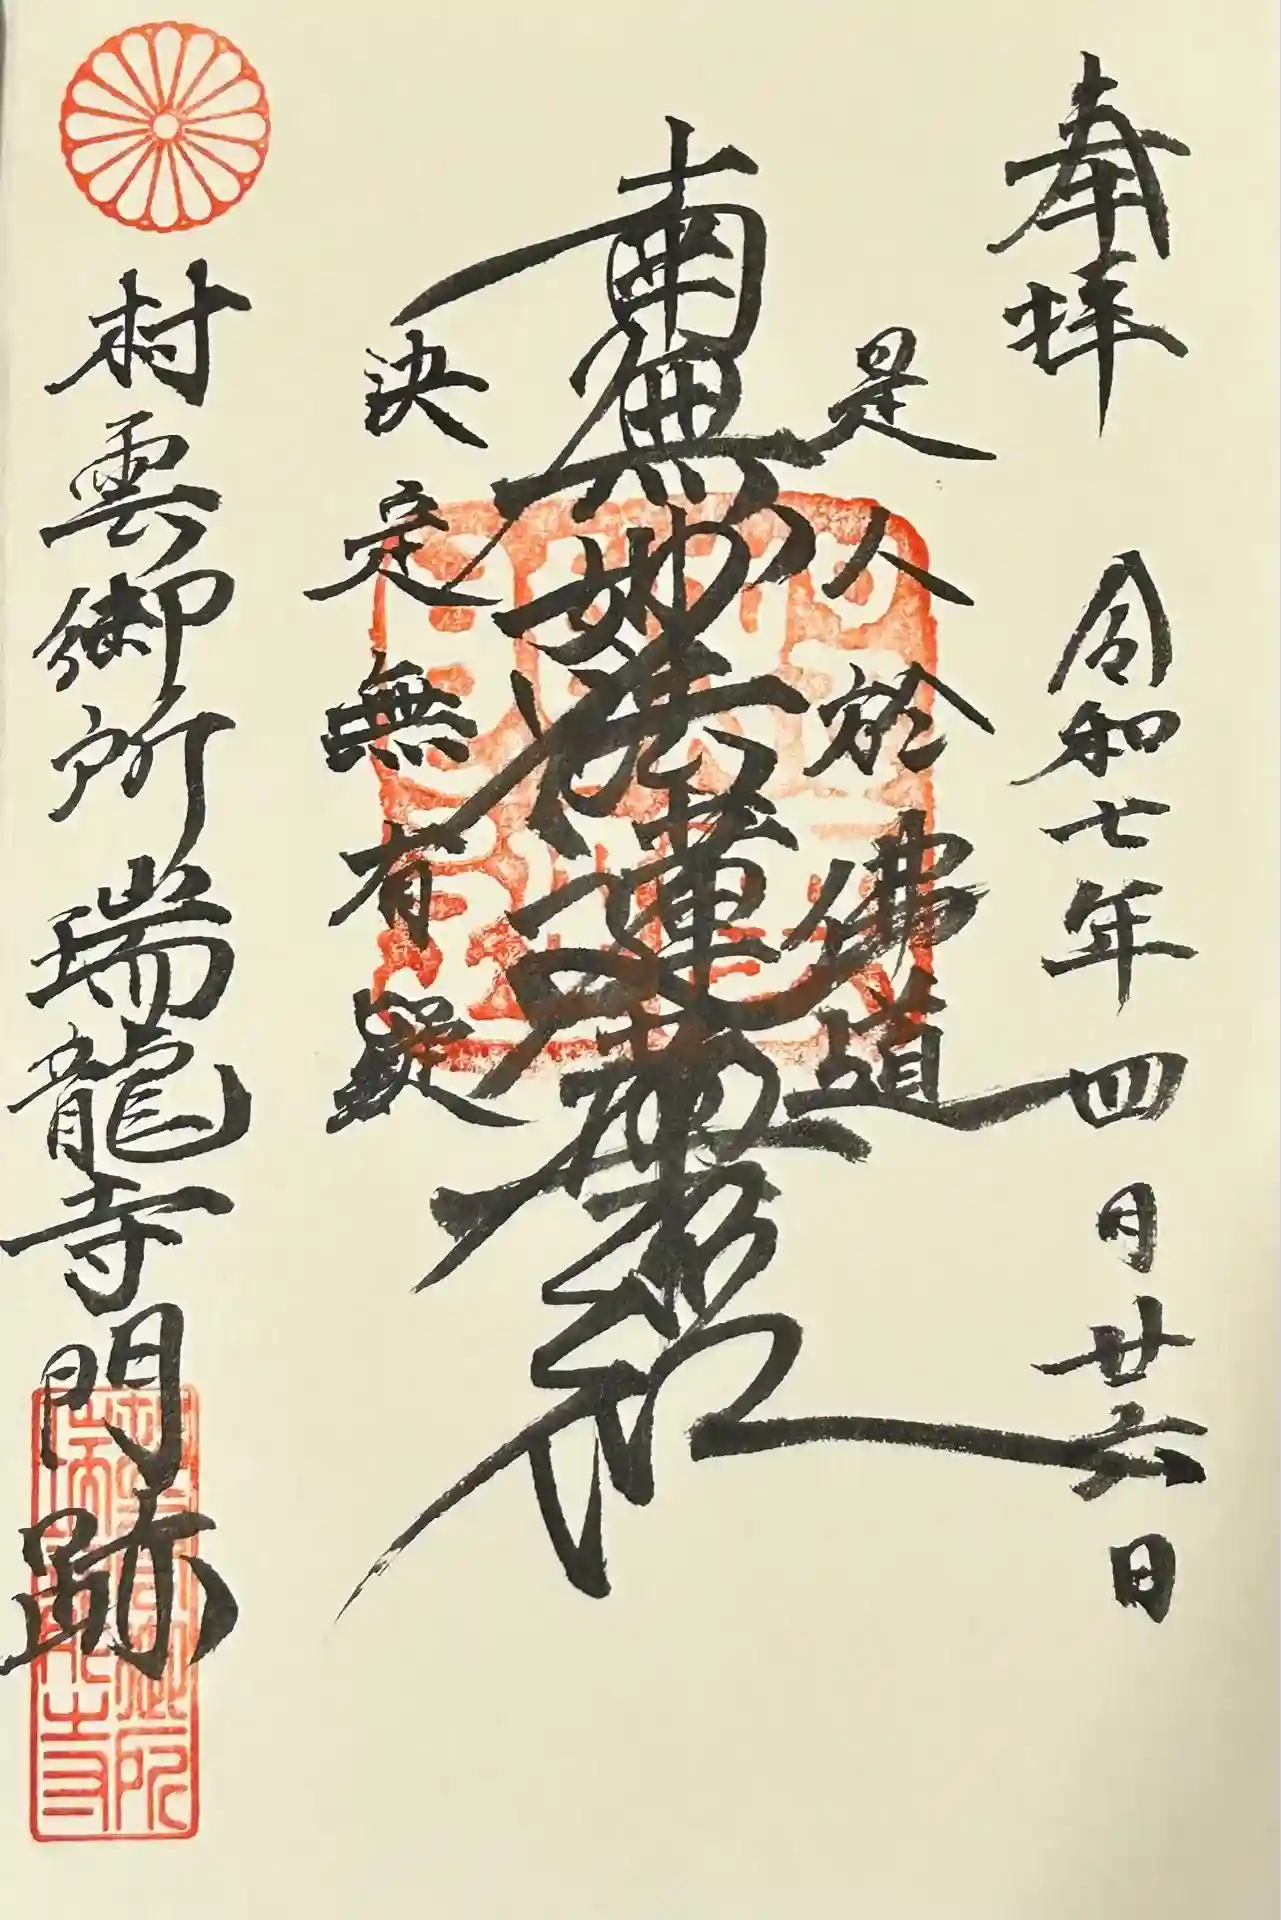 奉拝 令和七年四月廿六日
是人於佛道
南無妙法蓮華経
決定無有疑
村雲御所瑞龍寺門跡
村雲御所
瑞龍寺